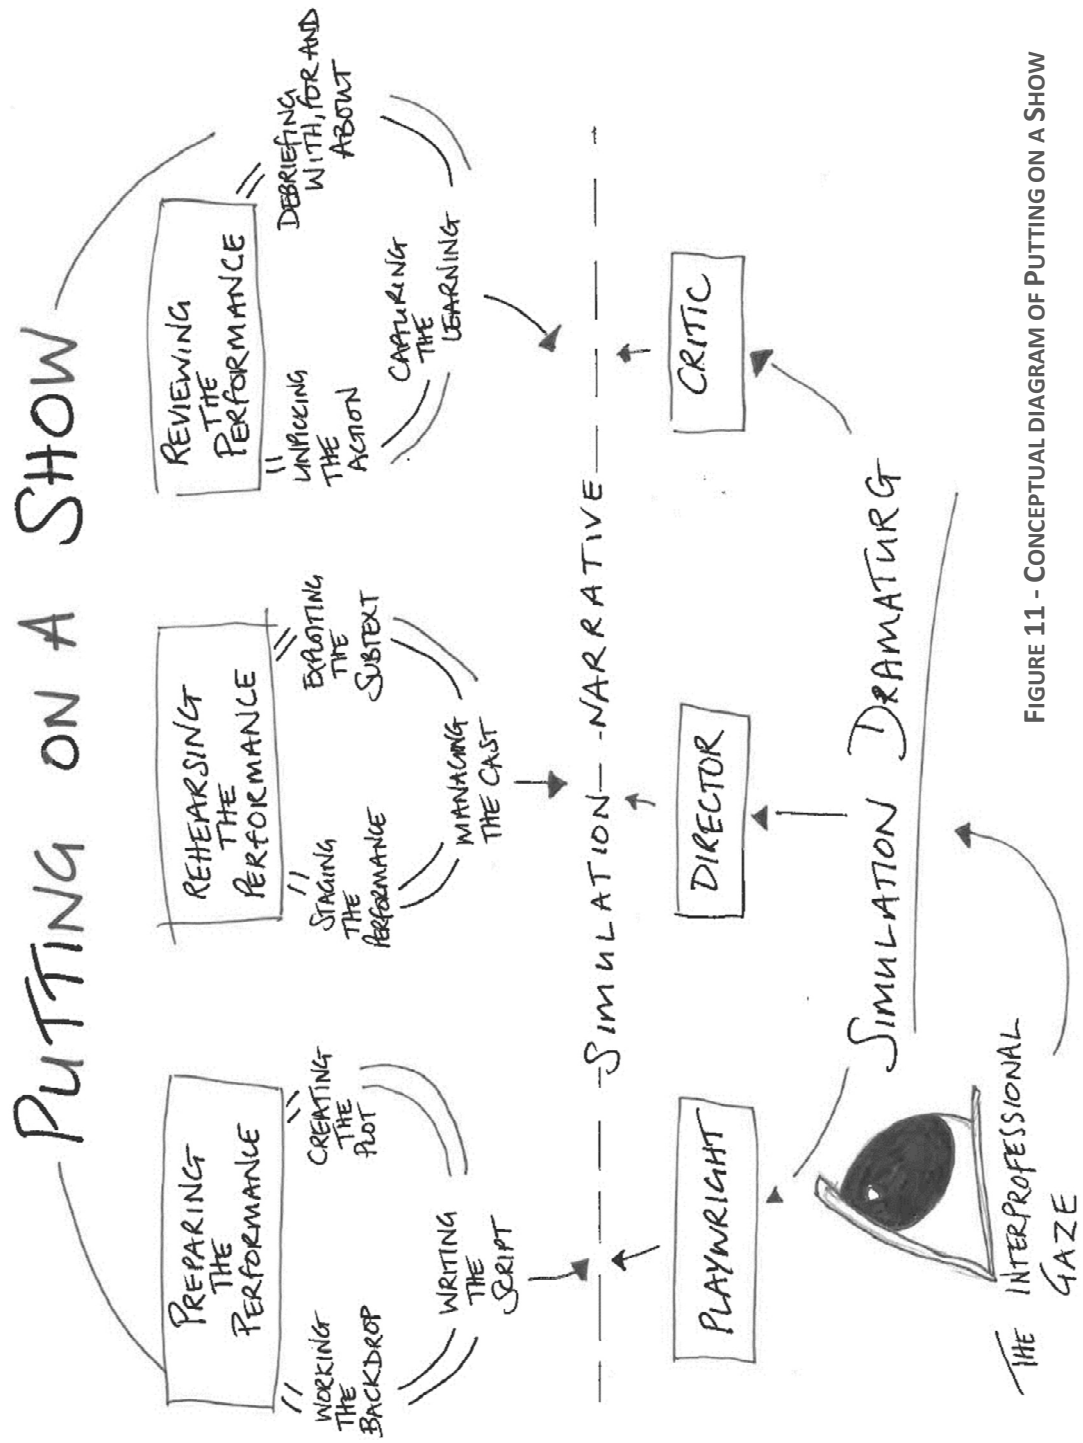 PUTTING ON A SHOW
PREPARING
THE
PERFORMANCE
WORKING
THE
BACKDROP
CREATING
THE
PLOT
WRITING
THE
SCRIPT
REHEARSING
THE
PERFORMANCE
STAGING
THE
PERFORMANCE
EXPLOITING
THE
SUBTEXT
MANAGING
THE CAST
REVIEWING
THE
PERFORMANCE
UNPICKING
THE
ACTION
DEBRIEFING
WITH, FOR AND
ABOUT
CAPTURING
THE
LEARNING
SIMULATION - NARRATIVE
PLAYWRIGHT
DIRECTOR
CRITIC
SIMULATION DRAMATURG
THE INTERPROFESSIONAL
GAZE
FIGURE 11 - CONCEPTUAL DIAGRAM OF PUTTING ON A SHOW